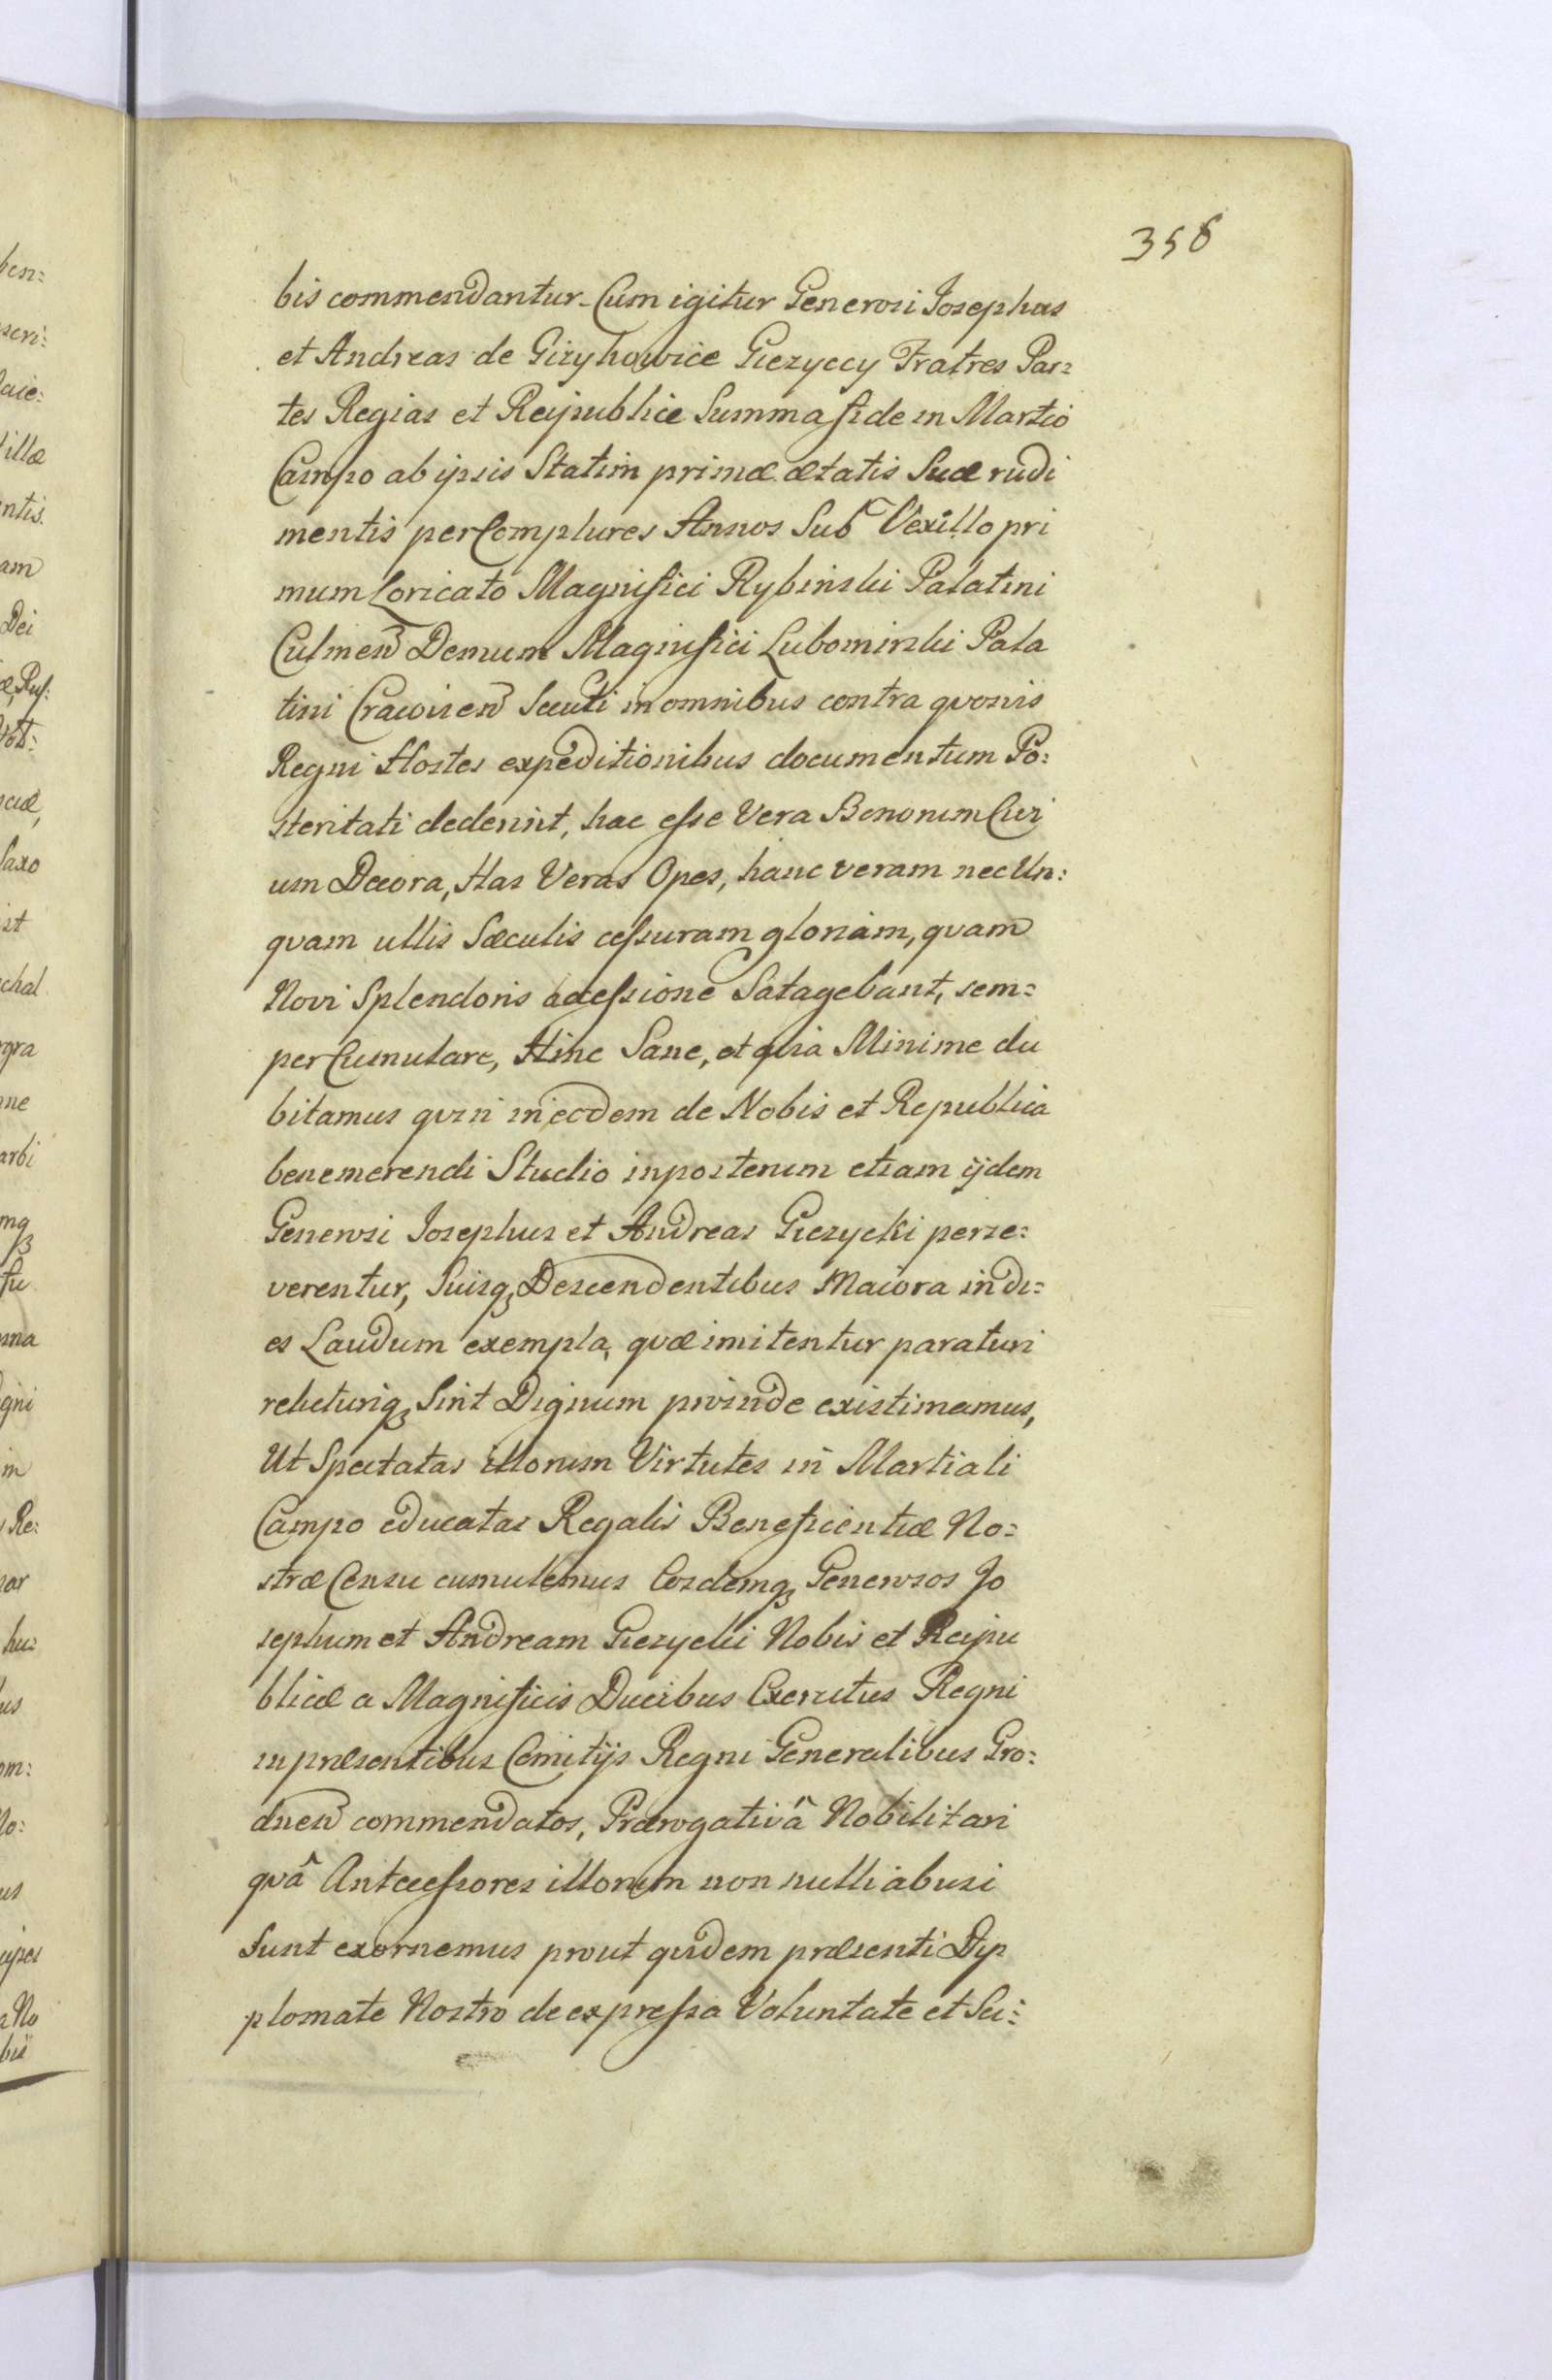 358
bis commendantur. Cum igitur Generosi Josephus
et Andreas de Gizyhowice Giezyccy Fratres Par:
tes Regias et Reipublice Summa fide in Martio
Campo ab ipsis Statim primæ ætatis Suæ rudi
mentis per Complures Annos Sub Vexillo pri
mum Loricato Magnifici Rybinski Palatini
Culmen Demum Magnifici Lubomirski Pala
tini Cracovien Secuti in omnibus contra qvosvis
Regni Hostes expeditionibus documentum Po:
steritati dederint, hæc esse Vera Bonorum Civi
um Decora, Has Veras Opes, hanc veram nec Un:
qvam ullis Sæculis cessuram gloriam, qvam
Novi Splendoris accessione Satagebant, sem:
per Cumulare, Hinc Sane, et quia Minime du
bitamus qvin in eodem de Nobis et Republica
benemerendi Studio inposterum etiam ijdem
Generosi Josephus et Andreas Giezycki perse:
verentur, Suisq, Descendentibus Maiora in di:
es Laudum exempla, qvæ imitentur paraturi
relicturiq, Sint Dignum proinde existimamus,
Ut Spectatas illorum Virtutes in Martiali
Campo educatas Regalis Beneficentiæ No:
stræ Censu cumulemus Eosdemq, Generosos Jo
sephum et Andream Giezycki Nobis et Reipu
blicæ a Magnificis Ducibus Exercitus Regni
in præsentibus Comitijs Regni Generalibus Gro:
dnen commendatos, Prærogativâ Nobilitari
qvâ Antecessores illorum non nulli abusi
Sunt exornemus prout qvidem præsenti Dyp
plomate Nostro de expressa Voluntate et Sci:
ben:
seri:
aie:
illæ
ntis.
am
Dei
axo
chal
gra
ne
arbi
gni
m
Re:
ar
hu:
us
om:
No:
us
No